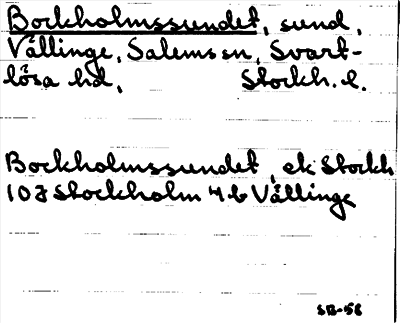 Bockholmssundet, sund,
Vällinge, Salems sn, Svart-
lösa hd, Stockh. l.
Bockholmssundet, ek Stockh
10J Stockholm 4b Vällinge
SB-56